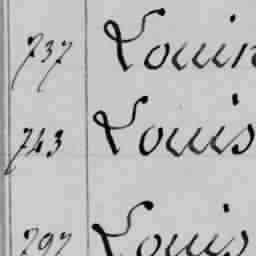 737 Louin
743 Louis
797 Louis